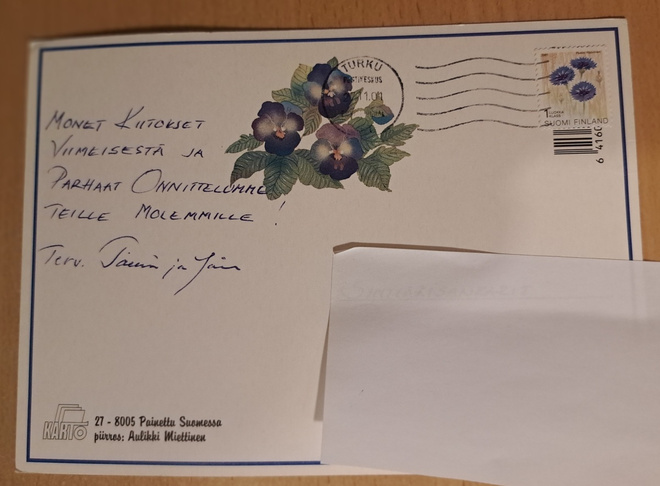 TURKU
SUOMI FINLAND
MONET KIITOKSET
VIIMEISESTÄ JA
PARHAAT ONNITTELUMME
TEILLE MOLEMMILLE!
Terv. ja
KARTO
27 - 8005 Painettu Suomessa
piirros: Aulikki Miettinen